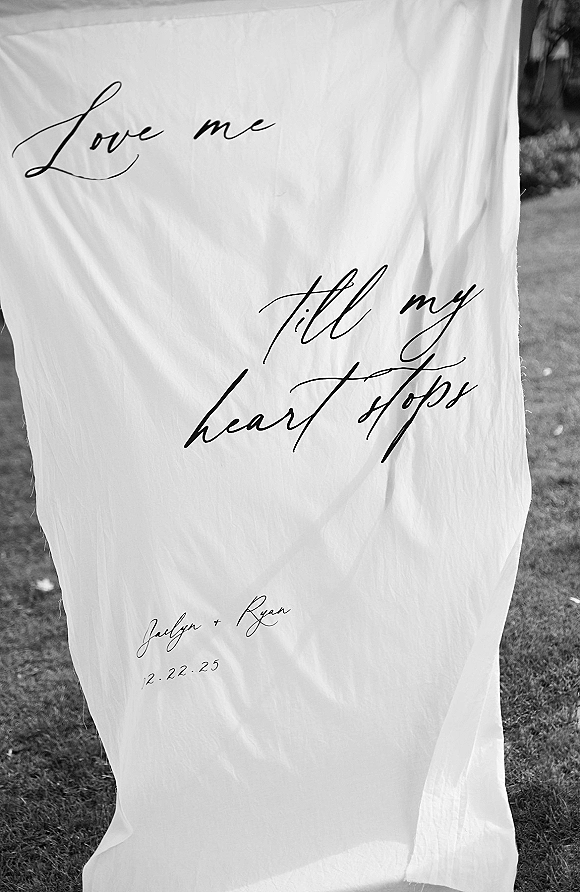 Love me
till my
heart stops
Jailyn + Ryan
12.22.25